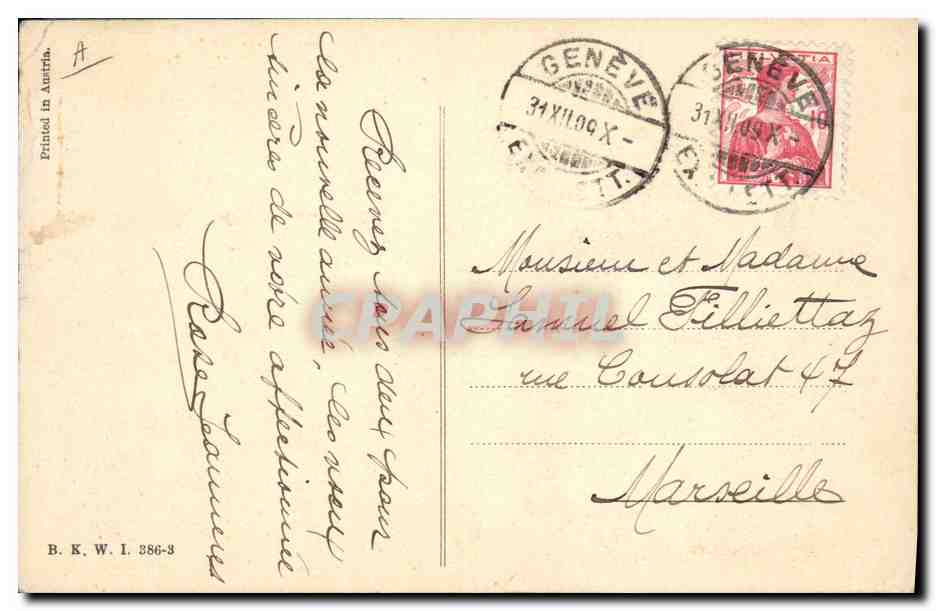 Printed in Austria.
A
Recevez tous deux pour
la nouvelle année, les vœux
sincères de votre affectionnée
Rose
GENÈVE
31.XII.09.X-
EXP. LETT.
GENÈVE
31.XII.09.X-
EXP. LETT.
HELVETIA
10
Monsieur et Madame
Samuel Filliettaz
rue Consolat 47
Marseille
CPAPHIL
B. K. W. I. 386-3